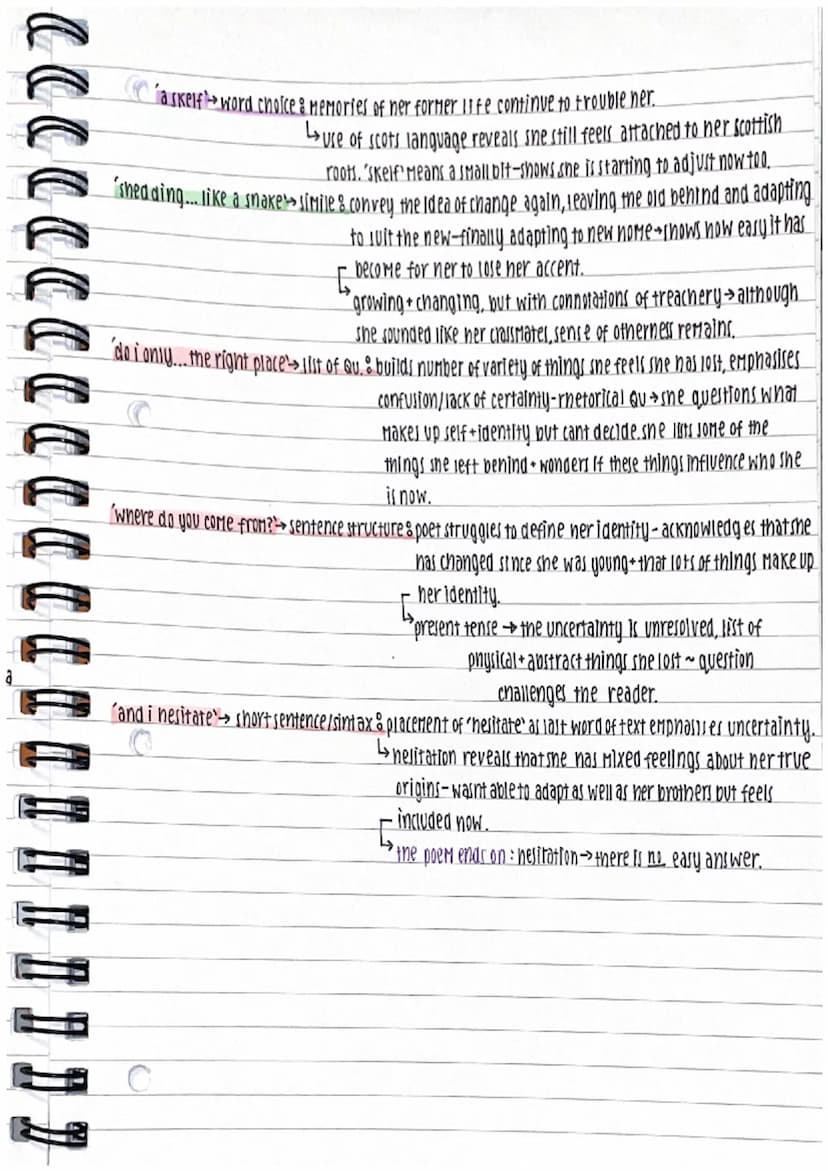 'a skelf'→word choice: memories of her former life continue to trouble her.
↳use of scots language reveals she still feels attached to her scottish
roots. 'skelf' means a small bit-shows she is starting to adjust now too.
'shedding... like a snake'→simile: convey the idea of change again, leaving the old behind and adapting
to suit the new-finally adapting to new home→shows how easy it has
become for her to lose her accent.
↳growing + changing, but with connotations of treachery→although
she sounded like her classmates, sense of otherness remains.
'do i only... the right place'→list of qu.: builds number of variety of things she feels she has lost, emphasises
confusion/lack of certainty-rhetorical qu→she questions what
makes up self+identity but cant decide. she lists some of the
things she left behind + wonders if these things influence who she
is now.
'where do you come from?'→sentence structure: poet struggles to define her identity - acknowledges that she
has changed since she was young+that lots of things make up
her identity.
↳present tense →the uncertainty is unresolved, list of
physical+abstract things she lost ~ question
a
challenges the reader.
'and i hesitate'→ short sentence/sintax: placement of 'hesitate' as last word of text emphasises uncertainty.
↳hesitation reveals that she has mixed feelings about her true
origins-wasnt able to adapt as well as her brothers but feels
included now.
↳the poem ends on: hesitation→there is no easy answer.